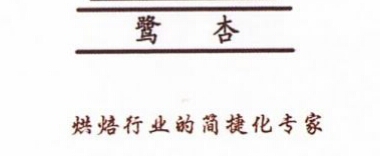 鹭 杏
烘焙行业的简捷化专家